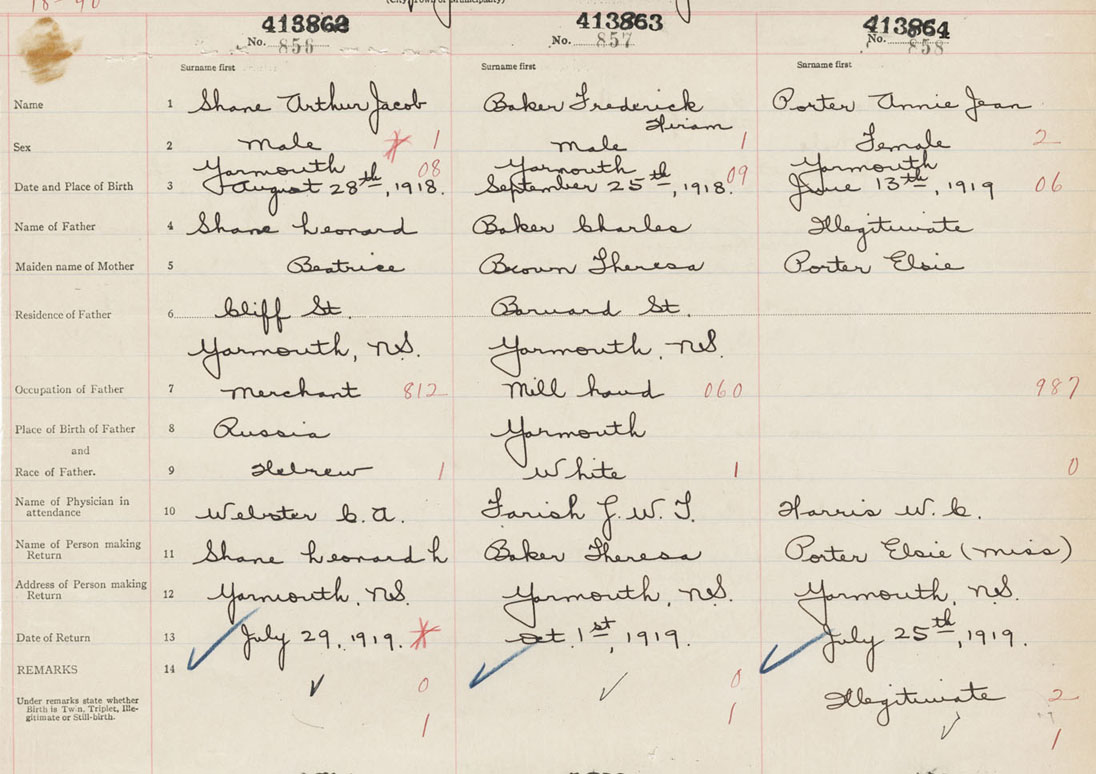 18-90
(City, Town or Municipality)
413862 413863 413864
No. 856 No. 857 No. 858
Surname first Surname first Surname first
Name 1 Shane Arthur Jacob Baker Frederick Hiram Porter Annie Jean
Sex 2 Male 1 Male 1 Female 2
Yarmouth 08 Yarmouth 09 Yarmouth
Date and Place of Birth 3 August 28th, 1918. September 25th, 1918. June 13th, 1919 06
Name of Father 4 Shane Leonard Baker Charles Illegitimate
Maiden name of Mother 5 Beatrice Brown Theresa Porter Elsie
Residence of Father 6 Cliff St. Barnard St.
Yarmouth, N.S. Yarmouth, N.S.
Occupation of Father 7 Merchant 812 Mill hand 060 987
Place of Birth of Father 8 Russia Yarmouth
and
Race of Father. 9 Hebrew 1 White 1 0
Name of Physician in attendance 10 Webster C. A. Farish J. W. T. Harris W. C.
Name of Person making Return 11 Shane Leonard h Baker Theresa Porter Elsie (Miss)
Address of Person making Return 12 Yarmouth, N.S. Yarmouth, N.S. Yarmouth, N.S.
Date of Return 13 July 29, 1919. Oct. 1st, 1919. July 25th, 1919.
REMARKS 14
0 0 Illegitimate 2
Under remarks state whether
Birth is Twin, Triplet, Ille-
gitimate or Still-birth.
1 1 1